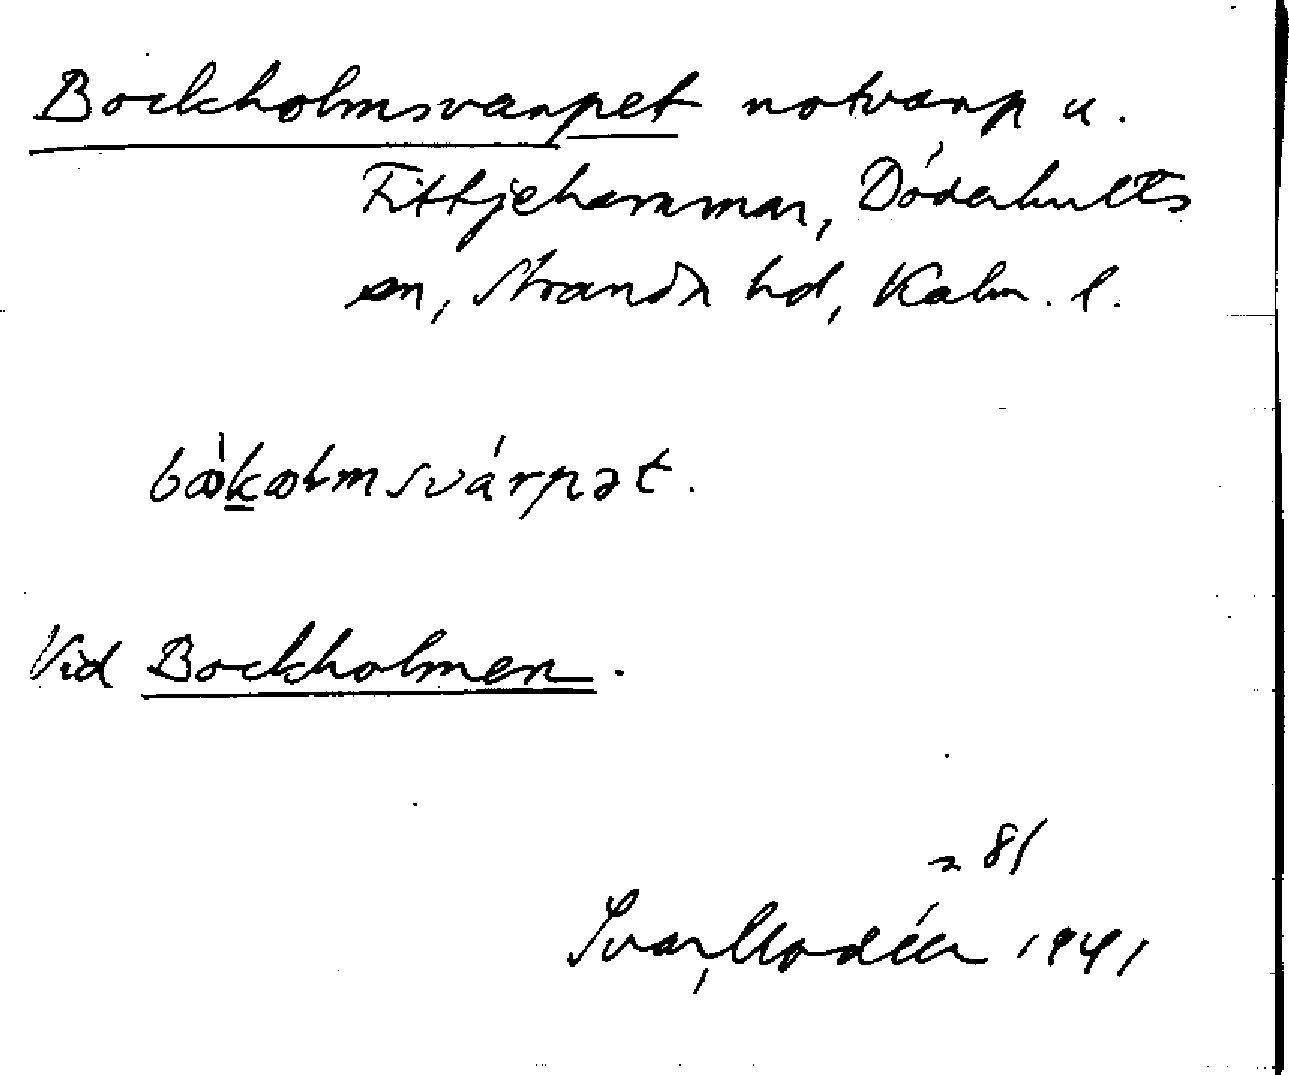 Bockholmsvarpet notvarp u.
Fittjehammar, Döderhults
sn, Stranda hd, Kalm. l.
bòkolmsvárpət.
Vid Bockholmen.
81
Ivar Modéer 1941